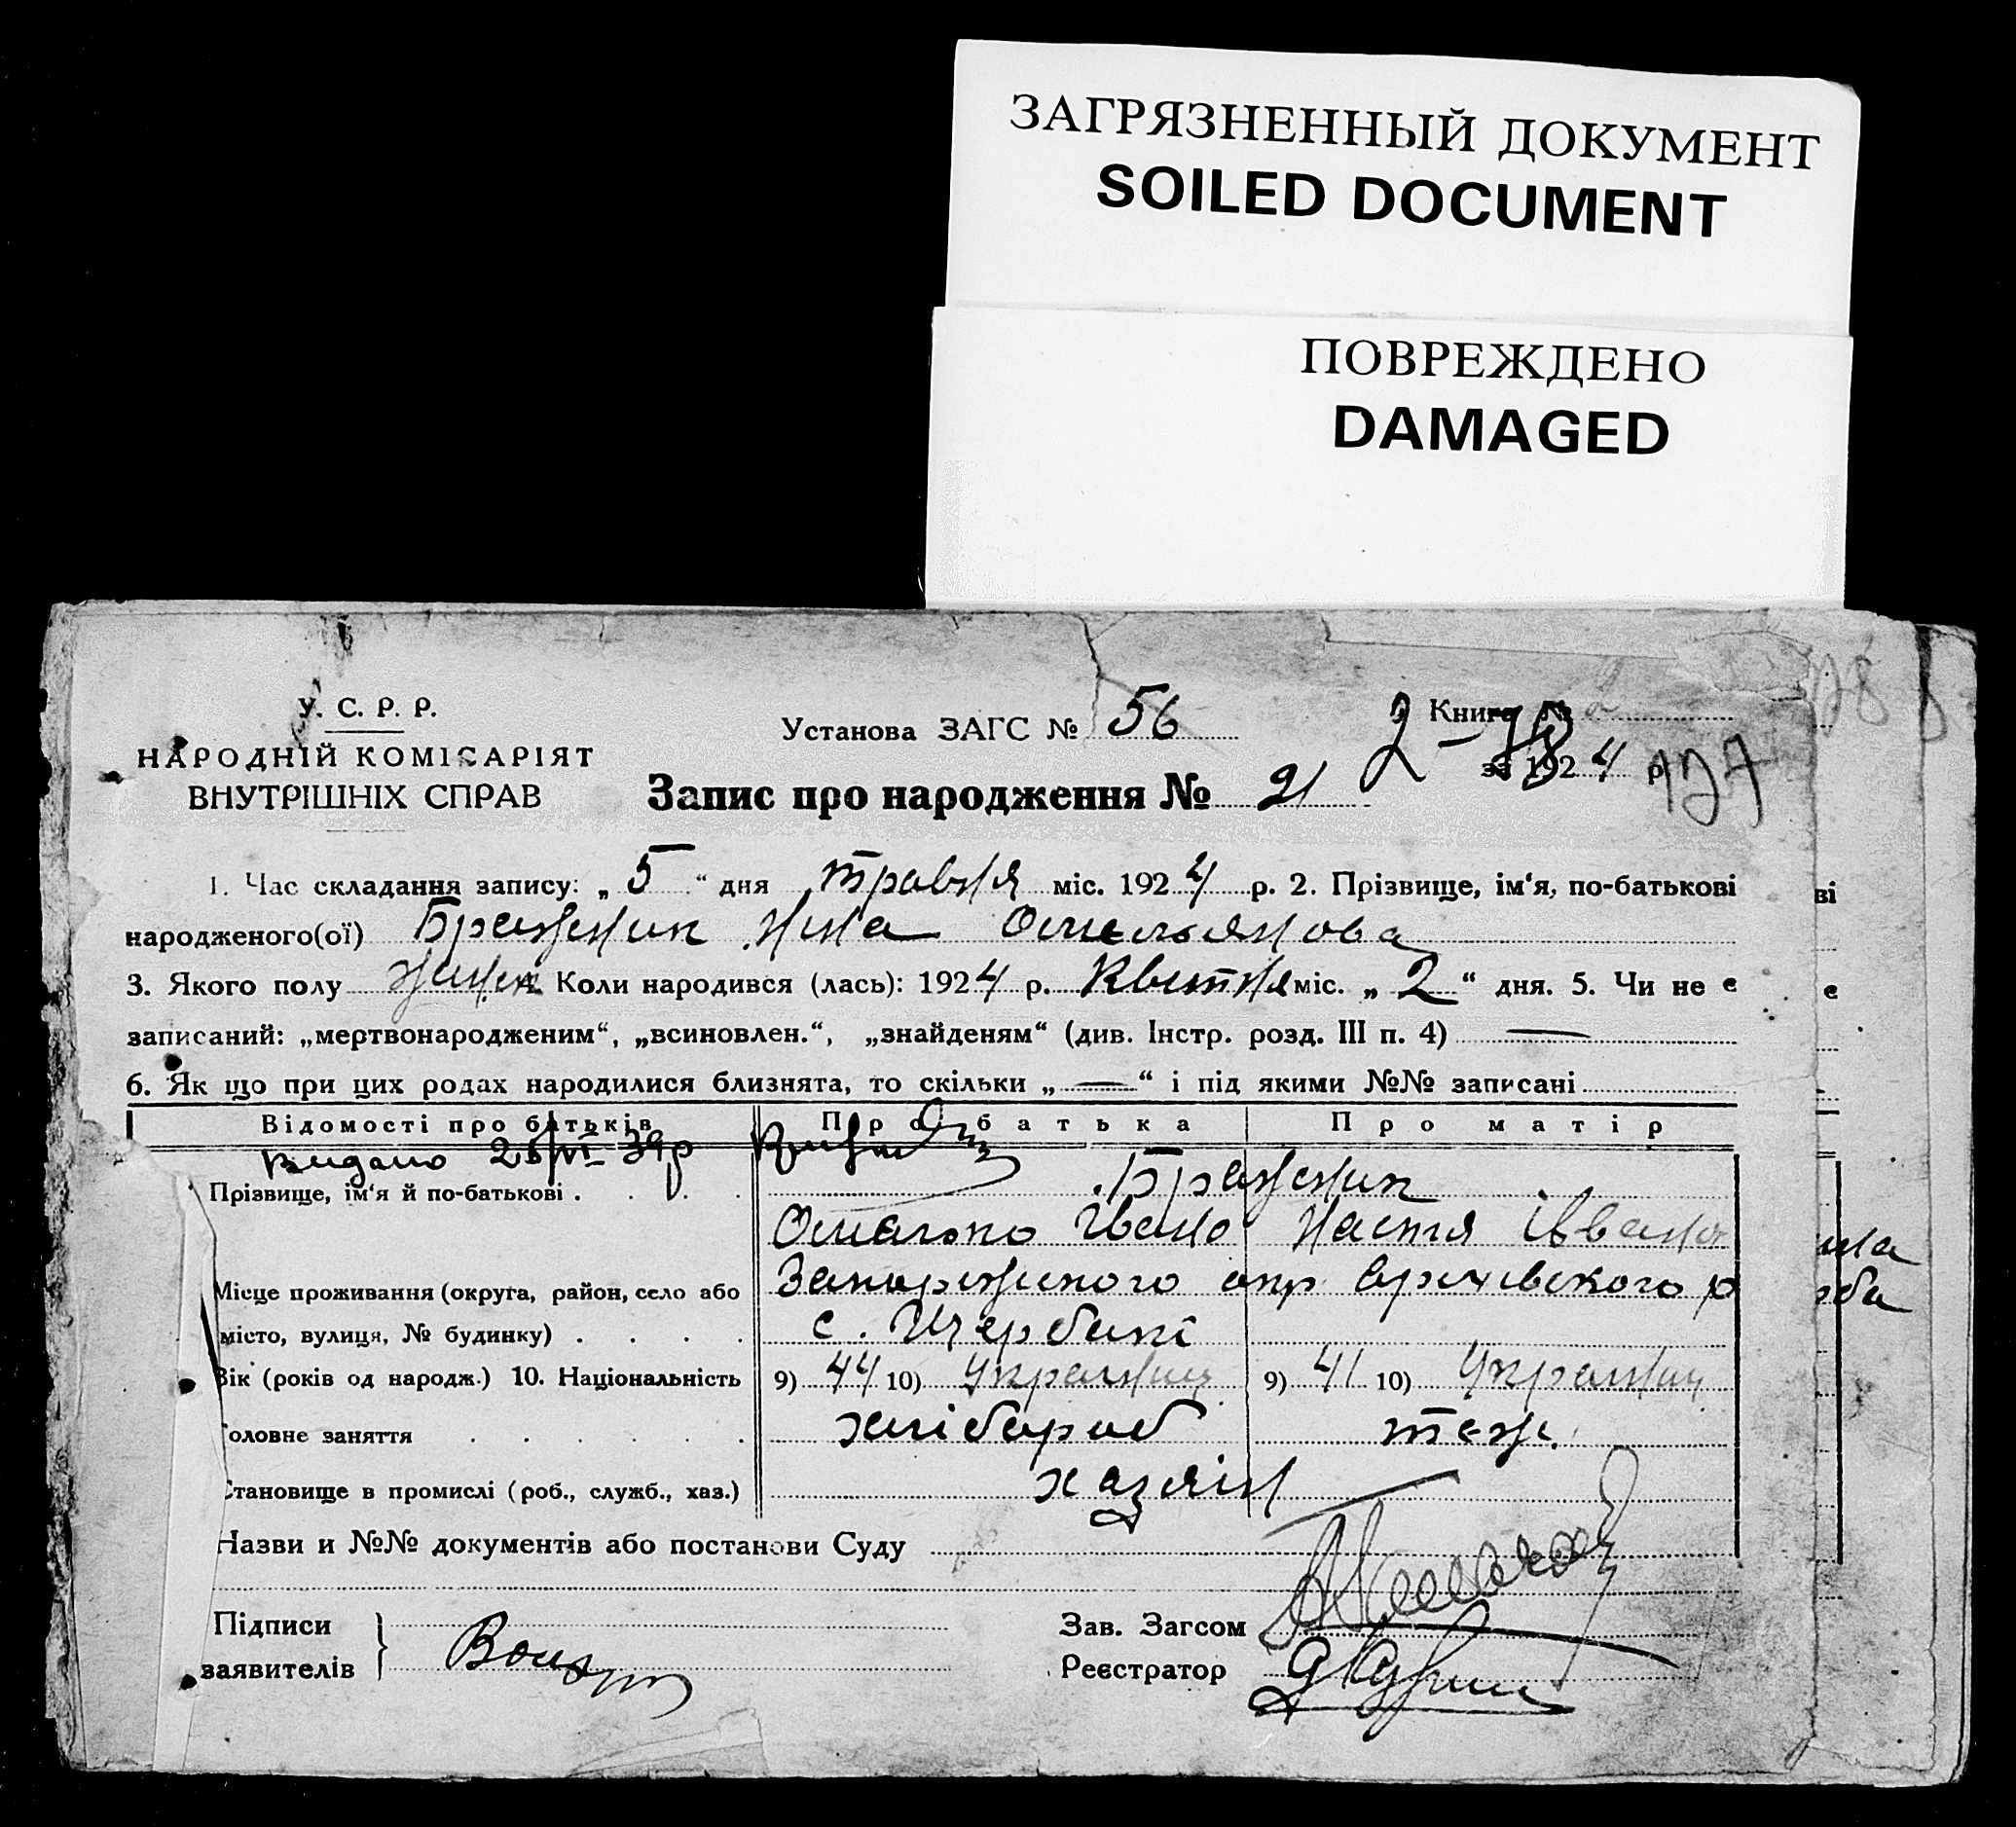 ЗАГРЯЗНЕННЫЙ ДОКУМЕНТ
SOILED DOCUMENT
ПОВРЕЖДЕНО
DAMAGED
У. С. Р. Р.
НАРОДНІЙ КОМІСАРІЯТ
ВНУТРІШНІХ СПРАВ
Установа ЗАГС № 56
Книга №
за 1924 р.
127
Запис про народження № 21
1. Час складання запису: „5“ дня травня міс. 1924 р. 2. Прізвище, ім‘я, по-батькові
народженого(ої) Бражник Нина Омельянова
3. Якого полу жіноч Коли народився (лась): 1924 р. Квитня міс. „2“ дня. 5. Чи не є
записаний: „мертвонародженим“, „всиновлен.“, „знайденям“ (див. Інстр. розд. III п. 4) —
6. Як що при цих родах народилися близнята, то скільки „—“ і під якими №№ записані
Відомості про батьків Про батька Про матір
Видано 39р
Прізвище, ім‘я й по-батькові . . . . Бражник
Омелько Івано Настя Іввано
Місце проживання (округа, район, село або Запоріжького окр Оріхівского р
місто, вулиця, № будинку) . . . . с. Щербакі
Вік (років од народж.) 10. Національність 9) 44 10) Украинц 9) 41 10) Украинц
Головне заняття . . . . . . хлібороб теж.
Становище в промислі (роб., служб., хаз.) хазяін —
Назви и №№ документів або постанови Суду
Підписи
заявителів
Зав. Загсом
Реєстратор